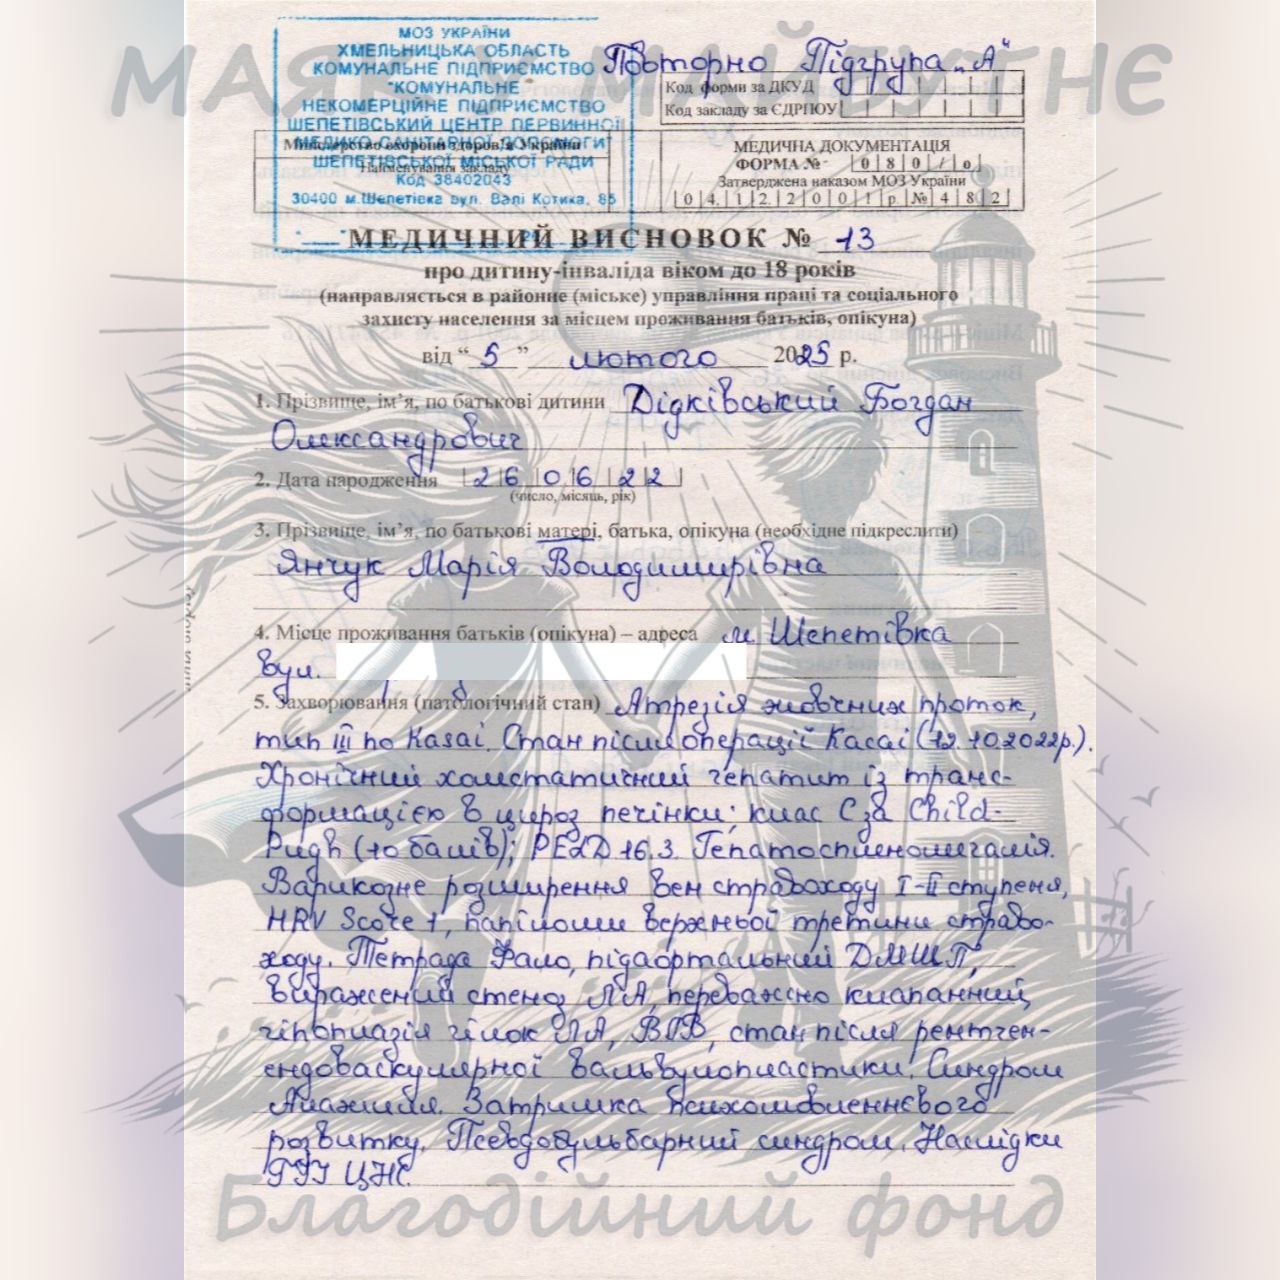 МАЯК МАЙБУТНЄ
МОЗ УКРАЇНИ
ХМЕЛЬНИЦЬКА ОБЛАСТЬ
КОМУНАЛЬНЕ ПІДПРИЄМСТВО
"КОМУНАЛЬНЕ
НЕКОМЕРЦІЙНЕ ПІДПРИЄМСТВО
ШЕПЕТІВСЬКИЙ ЦЕНТР ПЕРВИННОЇ
МЕДИКО-САНІТАРНОЇ ДОПОМОГИ"
ШЕПЕТІВСЬКОЇ МІСЬКОЇ РАДИ
Код 38402043
30400 м.Шепетівка вул. Валі Котика, 85
Міністерство охорони здоров'я України
Найменування закладу
Повторно Підгрупа „А"
Код форми за ДКУД
Код закладу за ЄДРПОУ
МЕДИЧНА ДОКУМЕНТАЦІЯ
ФОРМА № 080/о
Затверджена наказом МОЗ України
04.12.2001р. №482
МЕДИЧНИЙ ВИСНОВОК № 13
про дитину-інваліда віком до 18 років
(направляється в районне (міське) управління праці та соціального
захисту населення за місцем проживання батьків, опікуна)
від “ 5 ” лютого 2025 р.
1. Прізвище, ім’я, по батькові дитини Дідківський Богдан
Олександрович
2. Дата народження 26 06 22
(число, місяць, рік)
3. Прізвище, ім’я, по батькові матері, батька, опікуна (необхідне підкреслити)
Янчук Марія Володимирівна
4. Місце проживання батьків (опікуна) – адреса м. Шепетівка
вул.
5. Захворювання (патологічний стан) Атрезія жовчних проток,
тип III по Kasai. Стан після операції Касаі (12.10.2022р.).
Хронічний холестатичний гепатит із транс-
формацією в цироз печінки; клас С за Child-
Pugh (10 балів); PELD 16.3. Гепатоспленомегалія.
Варикозне розширення вен стравоходу I-II ступеня,
HRV Score 1, папіломи верхньої третини страво-
ходу. Тетрада Фало, підаортальний ДМШП,
виражений стеноз ЛА, переважно клапанний,
гіпоплазія гілок ЛА, ВОВ, стан після рентген-
ендоваскулярної вальвулопластики. Синдром
Алажилля. Затримка психомовленнєвого
розвитку. Псевдобульбарний синдром. Наслідки
ГІУ ЦНС.
Благодійний фонд